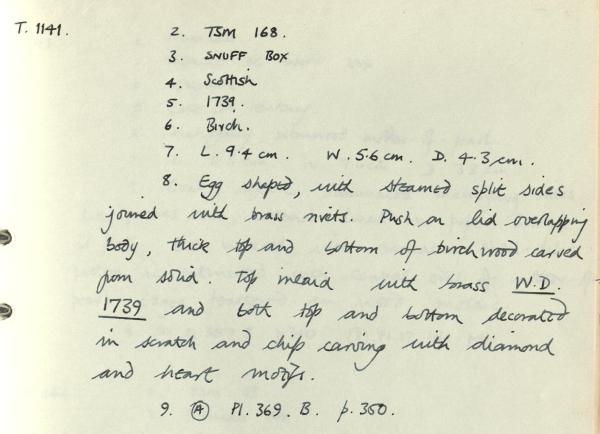 T. 1141. 2. TSM 168.
3. SNUFF BOX
4. Scottish
5. 1739.
6. Birch.
7. L. 9.4 cm. W. 5.6 cm. D. 4.3 cm.
8. Egg shaped, with steamed split sides
joined with brass rivets. Push on lid overlapping
body, thick top and bottom of birchwood carved
from solid. Top inlaid with brass W.D.
1739 and both top and bottom decorated
in scratch and chip carving with diamond
and heart motifs.
9. A Pl. 369. B. p. 350.